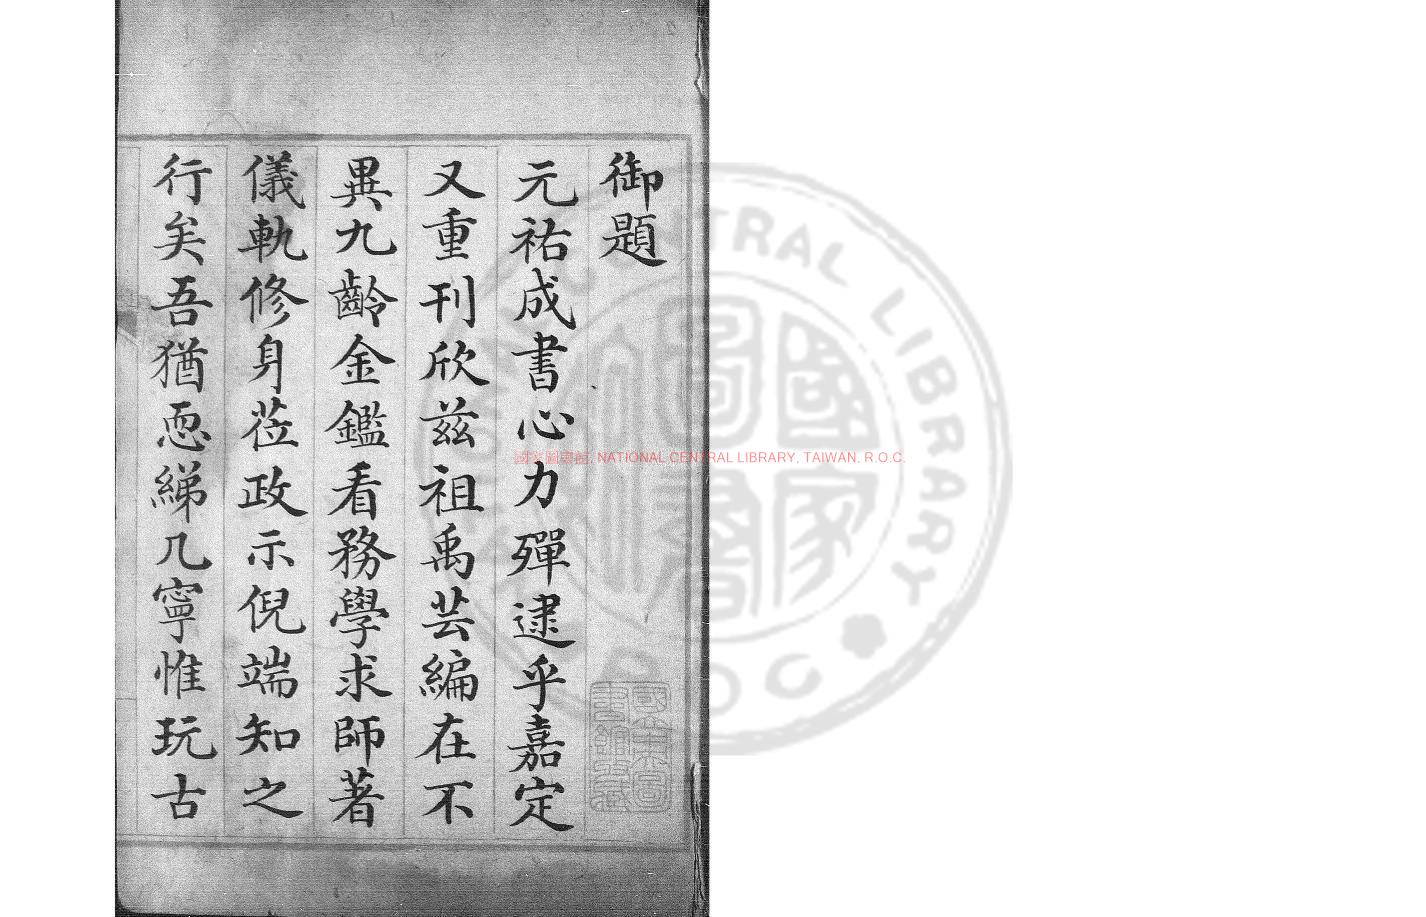 御題
元祐成書心力殫逮乎嘉定
又重刊欣兹祖禹芸編在不
異九齡金鑑看務學求師著
儀軌修身莅政示倪端知之
行矣吾猶恧綈几寧惟玩古
國家圖書館藏
國家圖書館, NATIONAL CENTRAL LIBRARY, TAIWAN, R.O.C.
國家圖書
NATIONAL CENTRAL LIBRARY
R O C